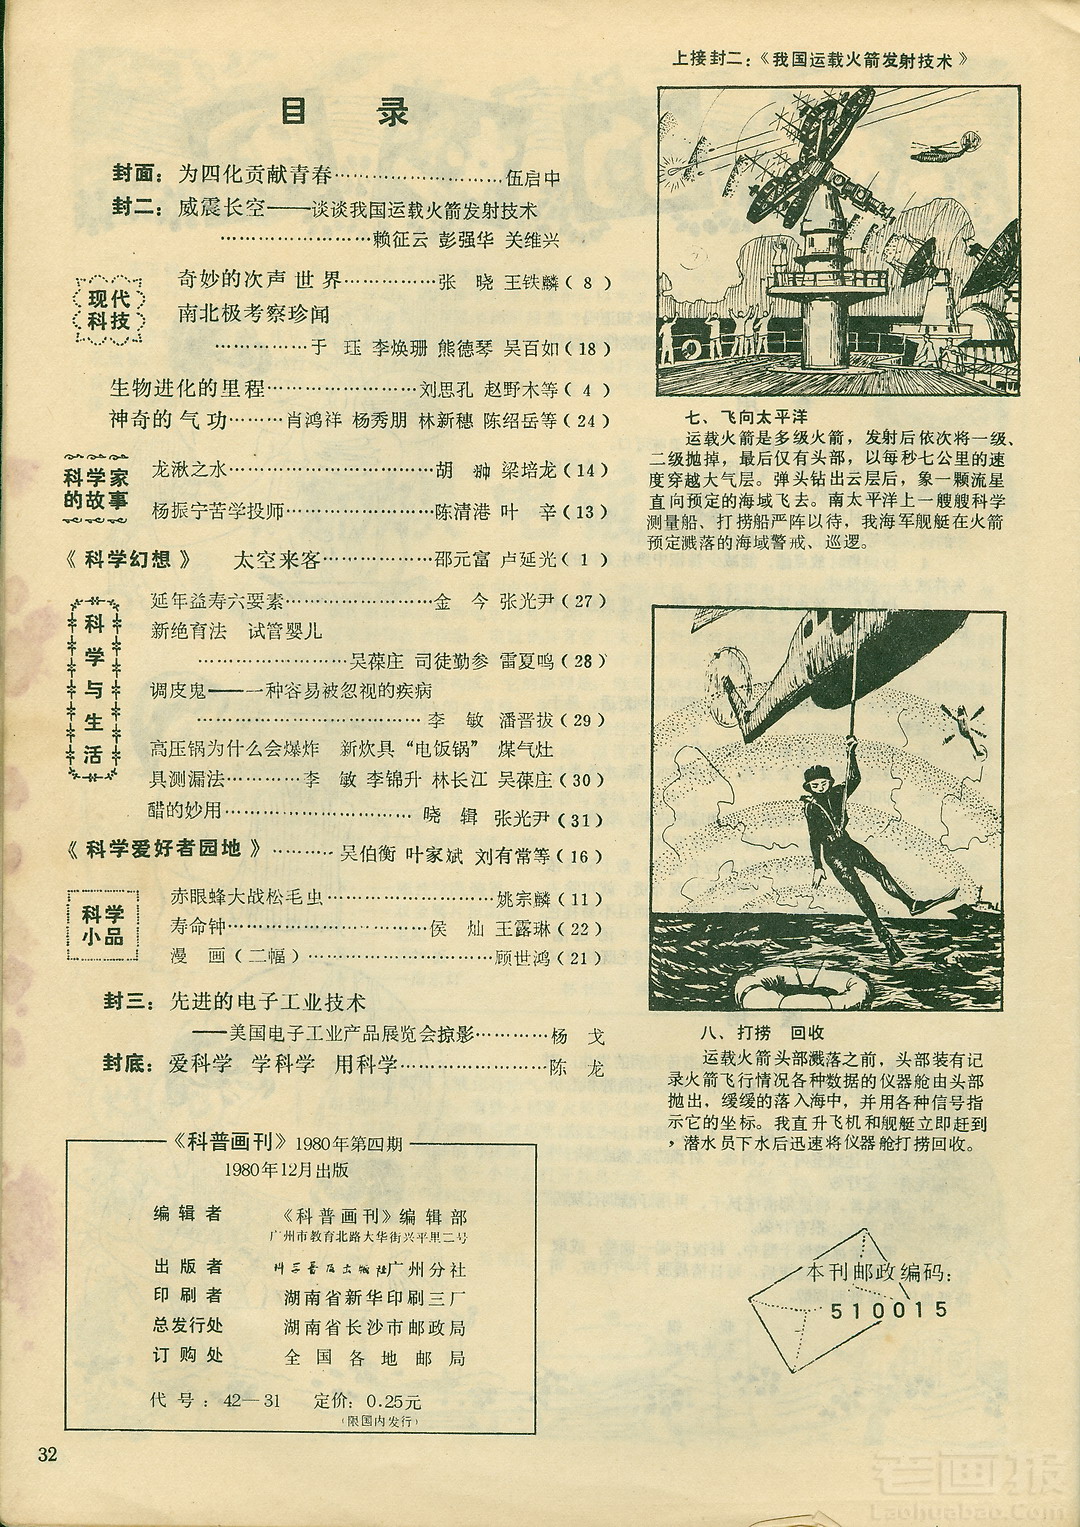 目 录
封面：为四化贡献青春……………………伍启中
封二：威震长空——谈谈我国运载火箭发射技术
…………………赖征云 彭强华 关维兴
现代
科技
奇妙的次声世界……………张 晓 王铁麟（8）
南北极考察珍闻
……………于 珏 李焕珊 熊德琴 吴百如（18）
生物进化的里程…………………刘思孔 赵野木等（4）
神奇的气功………肖鸿祥 杨秀朋 林新穗 陈绍岳等（24）
科学家
的故事
龙湫之水………………………胡 翀 梁培龙（14）
杨振宁苦学投师…………………陈清港 叶 辛（13）
《科学幻想》 太空来客……………邵元富 卢延光（1）
科学与生活
延年益寿六要素…………………金 今 张光尹（27）
新绝育法 试管婴儿
…………………吴葆庄 司徒勤参 雷夏鸣（28）
调皮鬼——一种容易被忽视的疾病
…………………………李 敏 潘晋拔（29）
高压锅为什么会爆炸 新炊具“电饭锅” 煤气灶
具测漏法…………李 敏 李锦升 林长江 吴葆庄（30）
醋的妙用……………………晓 辑 张光尹（31）
《科学爱好者园地》………吴伯衡 叶家斌 刘有常等（16）
科学
小品
赤眼蜂大战松毛虫…………………姚宗麟（11）
寿命钟……………………侯 灿 王露琳（22）
漫 画（二幅）……………………顾世鸿（21）
封三：先进的电子工业技术
——美国电子工业产品展览会掠影………杨 戈
封底：爱科学 学科学 用科学………………陈 龙
《科普画刊》1980年第四期
1980年12月出版
编辑者 《科普画刊》编辑部
广州市教育北路大华街兴平里二号
出版者 科学普及出版社广州分社
印刷者 湖南省新华印刷三厂
总发行处 湖南省长沙市邮政局
订购处 全国各地邮局
代号：42—31 定价：0.25元
（限国内发行）
32
上接封二：《我国运载火箭发射技术》
七、飞向太平洋
运载火箭是多级火箭，发射后依次将一级、
二级抛掉，最后仅有头部，以每秒七公里的速
度穿越大气层。弹头钻出云层后，象一颗流星
直向预定的海域飞去。南太平洋上一艘艘科学
测量船、打捞船严阵以待，我海军舰艇在火箭
预定溅落的海域警戒、巡逻。
八、打捞 回收
运载火箭头部溅落之前，头部装有记
录火箭飞行情况各种数据的仪器舱由头部
抛出，缓缓的落入海中，并用各种信号指
示它的坐标。我直升飞机和舰艇立即赶到
，潜水员下水后迅速将仪器舱打捞回收。
本刊邮政编码：
510015
老画报
Laohuabao.Com